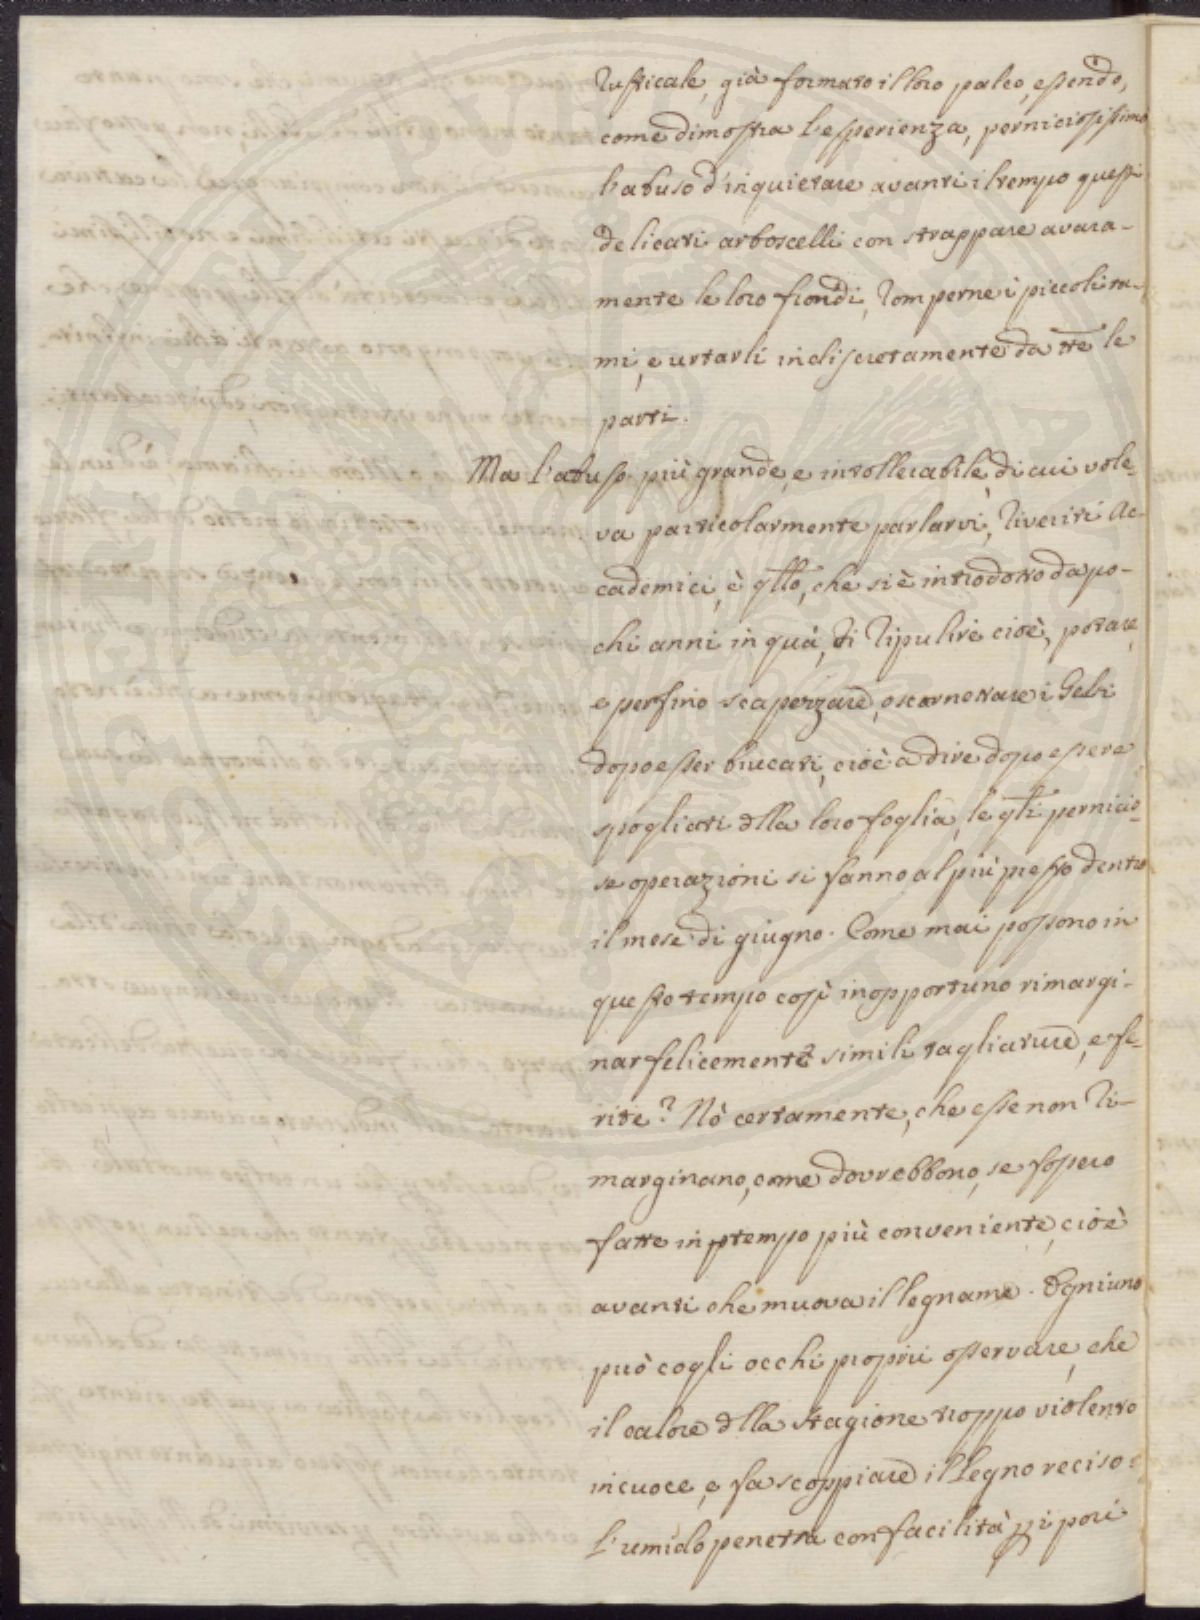 rusticale, già formato il loro palco, essendo,
come dimostra l'esperienza, perniciosissimo
l'abuso d'inquietare avanti il tempo questi
delicati arboscelli con strappare avara-
mente le loro frondi, romperne i piccoli ra-
mi, e urtarli indiscretamente da tt̃e le
parti.
Ma l'abuso più grande, e intollerabile, di cui vole-
va particolarmente parlarvi, riveriti Ac-
cademici, è q̃llo, che si è introdotto da po-
chi anni in quà, di ripulire cioè, potare,
e perfino scapezzare, o scornettare i Gelsi
dopo esser brucati, cioè a dire dopo essere
spogliati d̃lla loro foglia, le q̃li pernicio-
se operazioni si fanno al più presto dentro
il mese di giugno. Come mai possono in
questo tempo così inopportuno rimargi-
nar felicemente simili tagliature, e fe-
rite? Nò certamente, che esse non ri-
marginano, come dovrebbono, se fossero
fatte in tempo più conveniente, cioè
avanti che muova il legname. Ogniuno
può cogli occhi proprii osservare, che
il calore d̃lla stagione troppo violento
incuoce, e fa scoppiare il legno reciso
l'umido penetra con facilità p̱ i pori